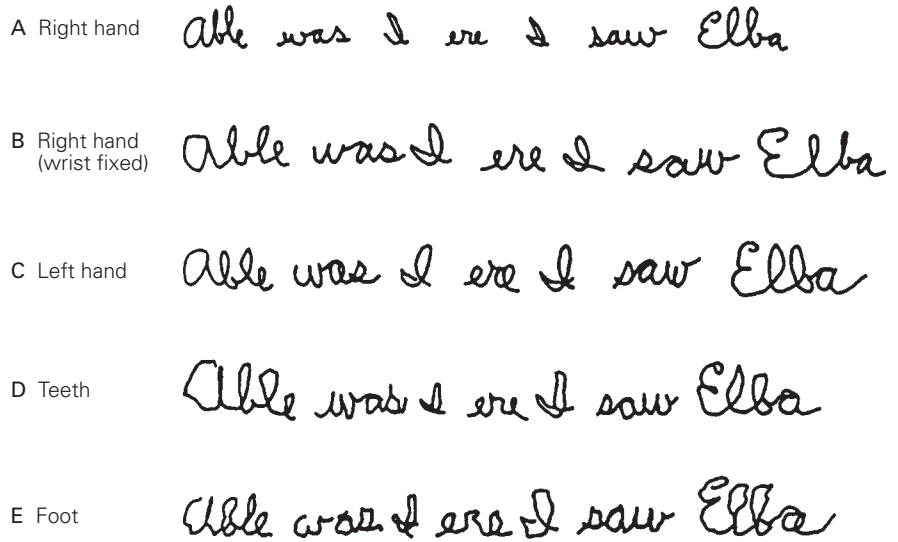 A Right hand Able was I ere I saw Elba
B Right hand (wrist fixed) Able was I ere I saw Elba
C Left hand Able was I ere I saw Elba
D Teeth Able was I ere I saw Elba
E Foot Able was I ere I saw Elba